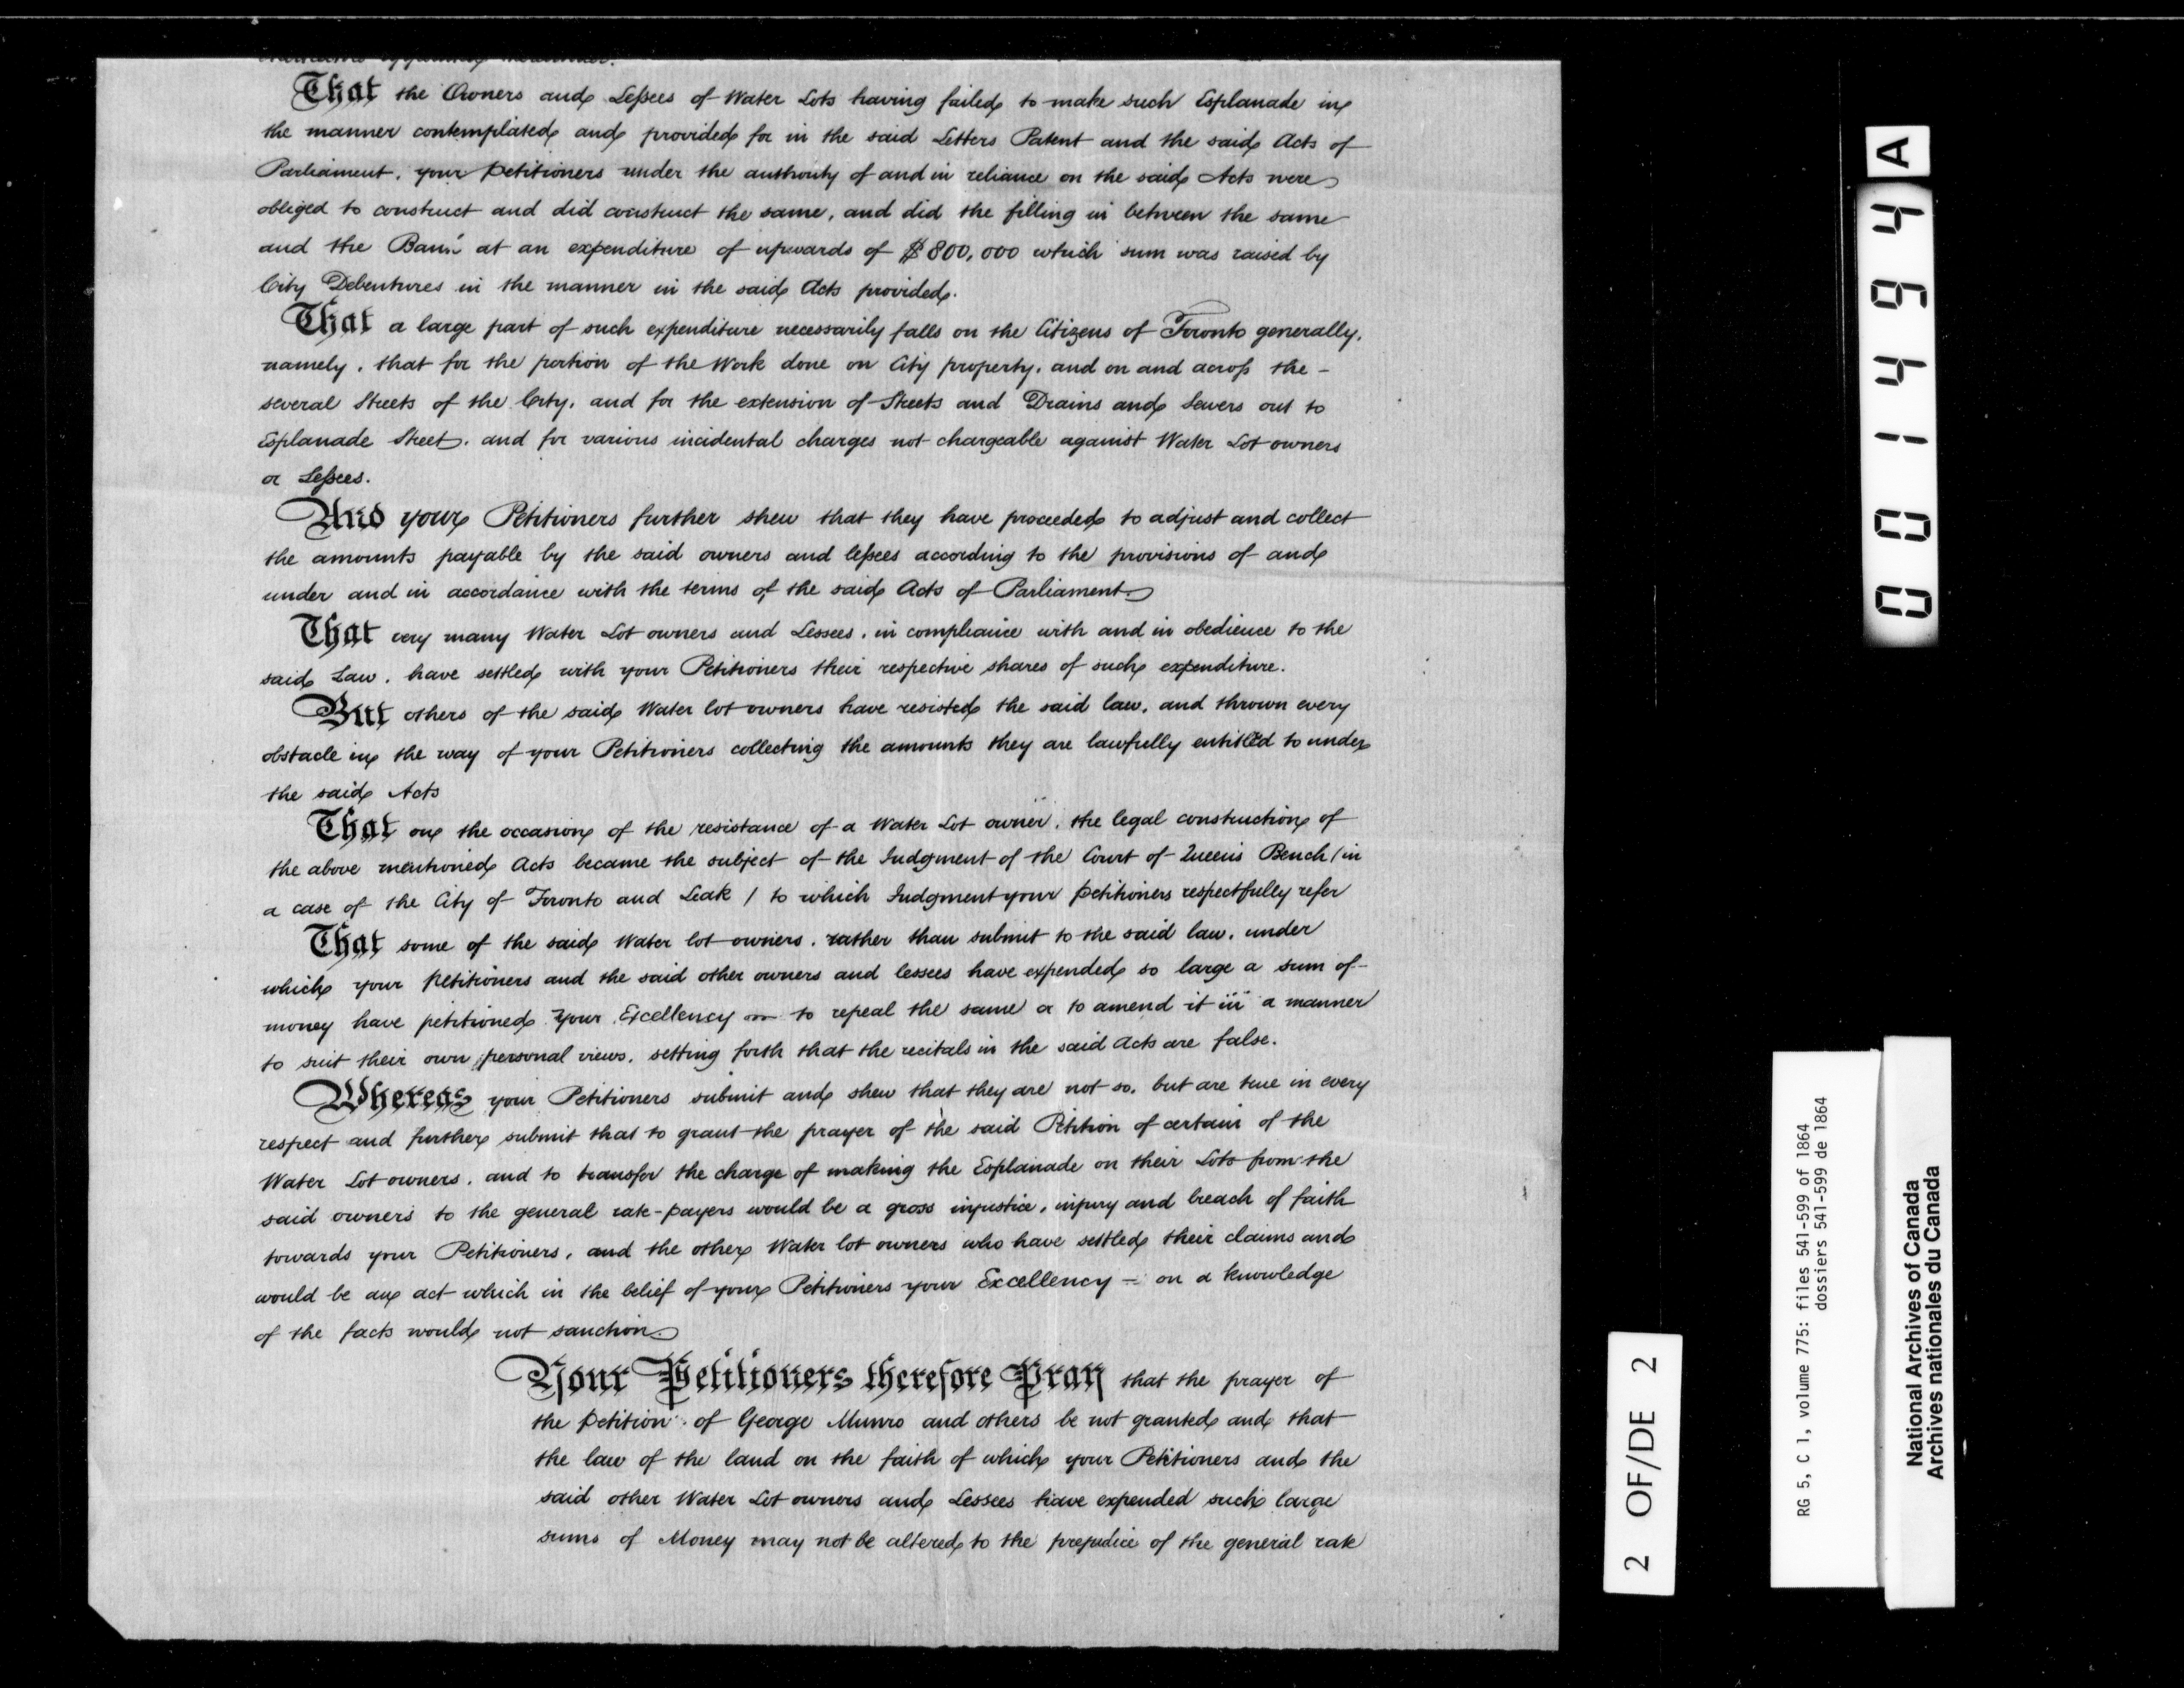 That the Owners and Lessees of Water Lots having failed to make such Esplanade in
the manner contemplated and provided for in the said Letters Patent and the said Acts of
Parliament, your Petitioners under the authority of and in reliance on the said Acts were
obliged to construct and did construct the same, and did the filling in between the same
and the Bank at an expenditure of upwards of $800,000 which sum was raised by
City Debentures in the manner in the said Acts provided.
That a large part of such expenditure necessarily falls on the Citizens of Toronto generally,
namely, that for the portion of the Work done on City property, and on and across the -
several Streets of the City, and for the extension of Streets and Drains and Sewers out to
Esplanade Street, and for various incidental charges not chargeable against Water Lot owners
or Lessees.
And your Petitioners further shew that they have proceeded to adjust and collect
the amounts payable by the said owners and lessees according to the provisions of and
under and in accordance with the terms of the said Acts of Parliament
That very many Water Lot owners and Lessees, in compliance with and in obedience to the
said Law, have settled with your Petitioners their respective shares of such expenditure.
But others of the said Water lot owners have resisted the said law, and thrown every
obstacle in the way of your Petitioners collecting the amounts they are lawfully entitled to under
the said Acts
That on the occasion of the resistance of a Water Lot owner, the legal construction of
the above mentioned Acts became the subject of the Judgment of the Court of Queen's Bench / in
a case of the City of Toronto and Leak / to which Judgment your petitioners respectfully refer
That some of the said Water lot owners, rather than submit to the said law, under
which your Petitioners and the said other owners and lessees have expended so large a sum of -
money have petitioned your Excellency to repeal the same or to amend it in a manner
to suit their own personal views, setting forth that the recitals in the said Acts are false.
Whereas your Petitioners submit and shew that they are not so, but are true in every
respect and further submit that to grant the prayer of the said Petition of certain of the
Water Lot owners, and to transfer the charge of making the Esplanade on their Lots from the
said owners to the general rate-payers would be a gross injustice, injury and breach of faith
towards your Petitioners, and the other Water lot owners who have settled their claims and
would be an act which in the belief of your Petitioners your Excellency - on a knowledge
of the facts would not sanction.
Your Petitioners therefore Pray that the prayer of
the petition of George Munro and others be not granted and that
the law of the land on the faith of which your Petitioners and the
said other Water Lot owners and Lessees have expended such large
sums of Money may not be altered to the prejudice of the general rate
001494 A
2 OF/DE 2
RG 5, C 1, volume 775: files 541-599 of 1864
dossiers 541-599 de 1864
National Archives of Canada
Archives nationales du Canada